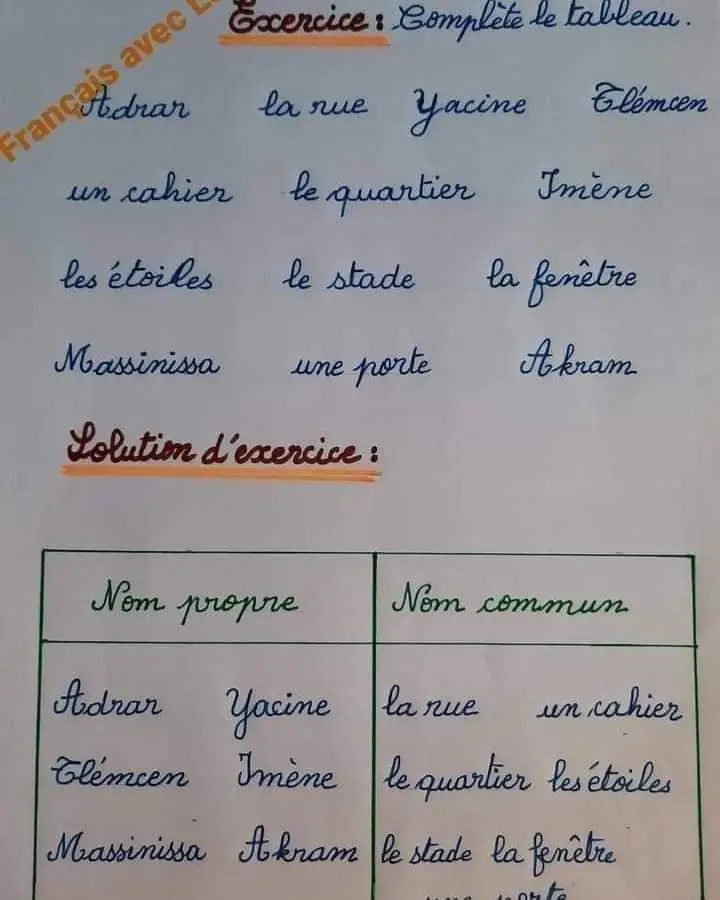 Français avec
Exercice : Complète le tableau.
Adrar la rue Yacine Tlémcen
un cahier le quartier Imène
les étoiles le stade la fenêtre
Massinissa une porte Akram
Solution d'exercice :
Nom propre Nom commun
Adrar Yacine la rue un cahier
Tlémcen Imène le quartier les étoiles
Massinissa Akram le stade la fenêtre
une porte